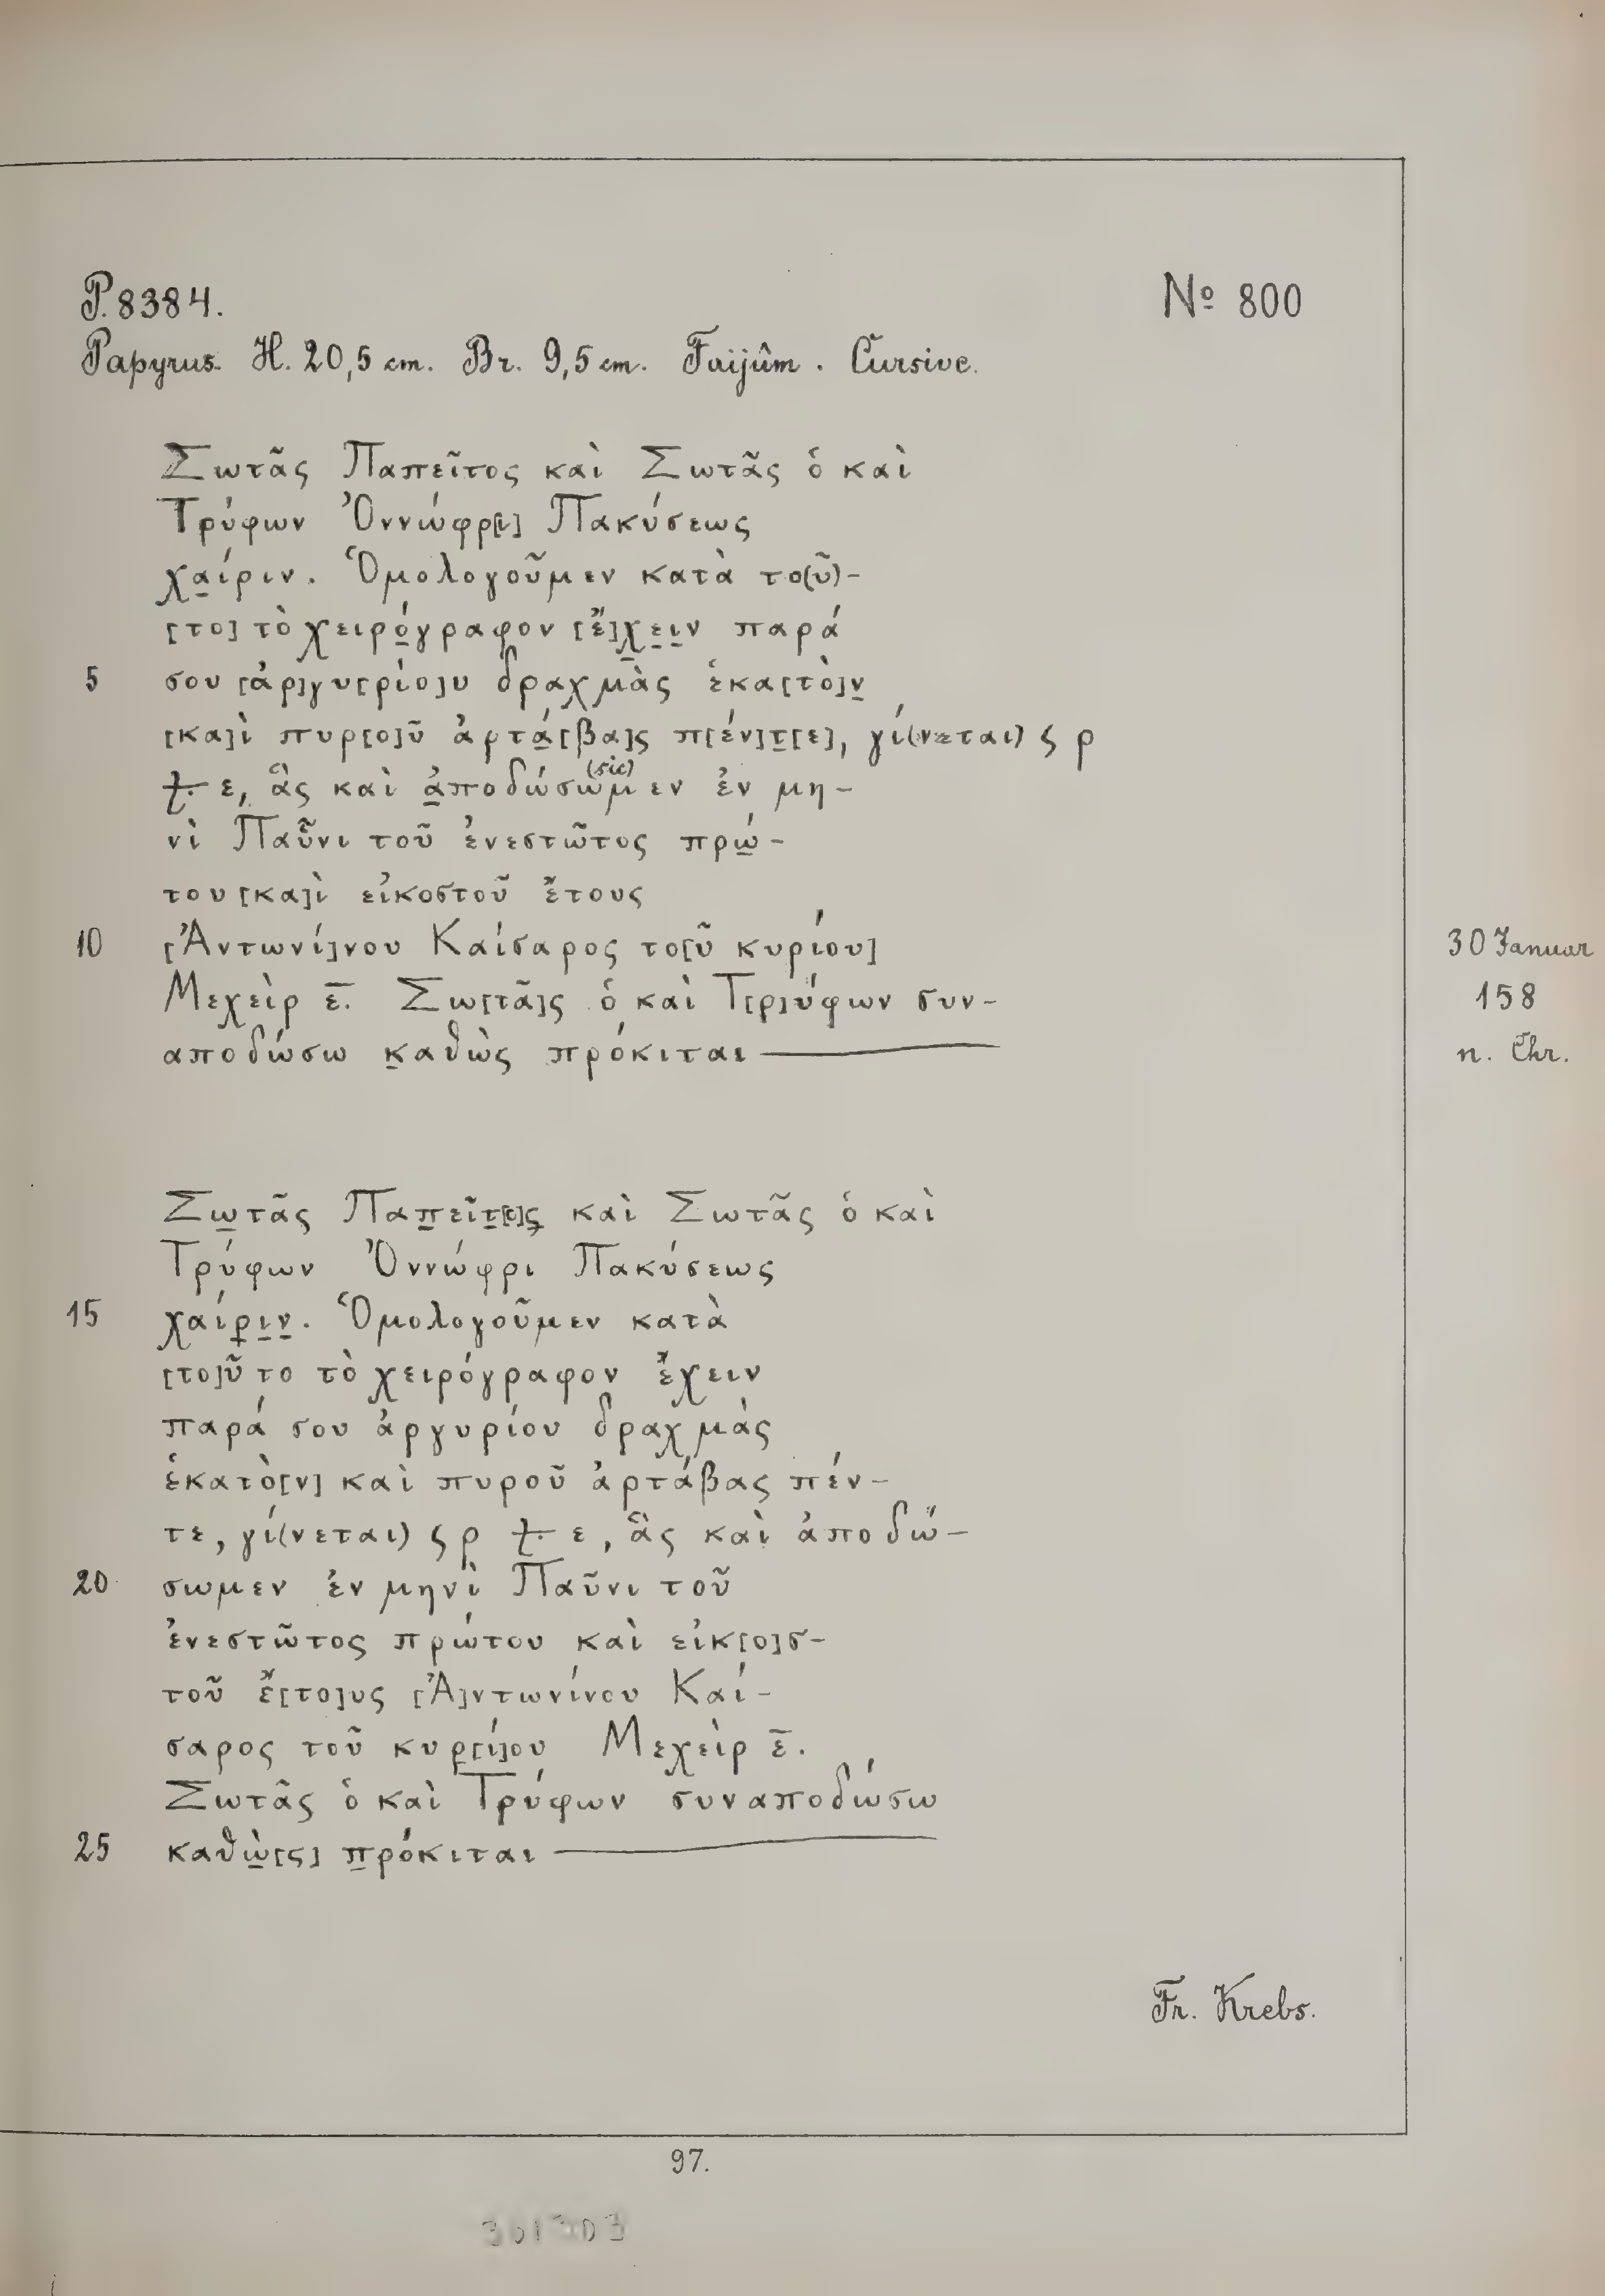 P. 8384. № 800
Papyrus. H. 20,5 cm. Br. 9,5 cm. Faijûm. Cursive.
Σωτᾶς Παπεῖτος καὶ Σωτᾶς ὁ καὶ
Τρύφων Ὀννώφρ[ι] Πακύσεως
χα̣ίριν. Ὁμολογοῦμεν κατὰ το(ῦ)-
[το] τὸ χειρό̣γραφον [ἔ]χ̣ε̣ι̣ν παρά
5 σου [ἀρ]γυ[ρίο]υ δραχμὰς ἑκα[τὸ]ν̣
[κα]ὶ πυρ[ο]ῦ ἀρτά̣[βα]ς π[έν]τ̣[ε], γί(νεται) ϛ ρ
⨪ ε, ἃς καὶ ἀ̣ποδώσωμεν (sic) ἐν μη-
νὶ Παῦνι τοῦ ἐνεστῶτος πρώ̣-
του [κα]ὶ εἰκοστοῦ ἔτους
10 [Ἀντωνί]νου Καίσαρος το[ῦ κυρίου] 30 Januar
Μεχεὶρ ε̅. Σω[τᾶ]ς ὁ καὶ Τ[ρ]ύφων συν- 158
αποδώσω κ̣αθὼς πρόκιται — n. Chr.
Σω̣τᾶς Παπ̣εῖτ̣[ο]ς̣ καὶ Σωτᾶς ὁ καὶ
Τρύφων Ὀννώφρι Πακύσεως
15 χαίρ̣ι̣ν̣. Ὁμολογοῦμεν κατὰ
[το]ῦτο τὸ χειρόγραφον ἔχειν
παρά σου ἀργυρίου δραχμὰς
ἑκατὸ[ν] καὶ πυροῦ ἀρτάβας πέν-
τε, γί(νεται) ϛ ρ ⨪ ε, ἃς καὶ ἀποδώ-
20 σωμεν ἐν μηνὶ Παῦνι τοῦ
ἐνεστῶτος πρώτου καὶ εἰκ[ο]σ-
τοῦ ἔ[το]υς [Ἀ]ντωνίνου Καί-
σαρος τοῦ κυρ̣[ί]ου Μεχεὶρ ε̅.
Σωτᾶς ὁ καὶ Τρύφων συναποδώσω
25 καθὼ̣[ς] π̣ρόκιται —
Fr. Krebs.
97.